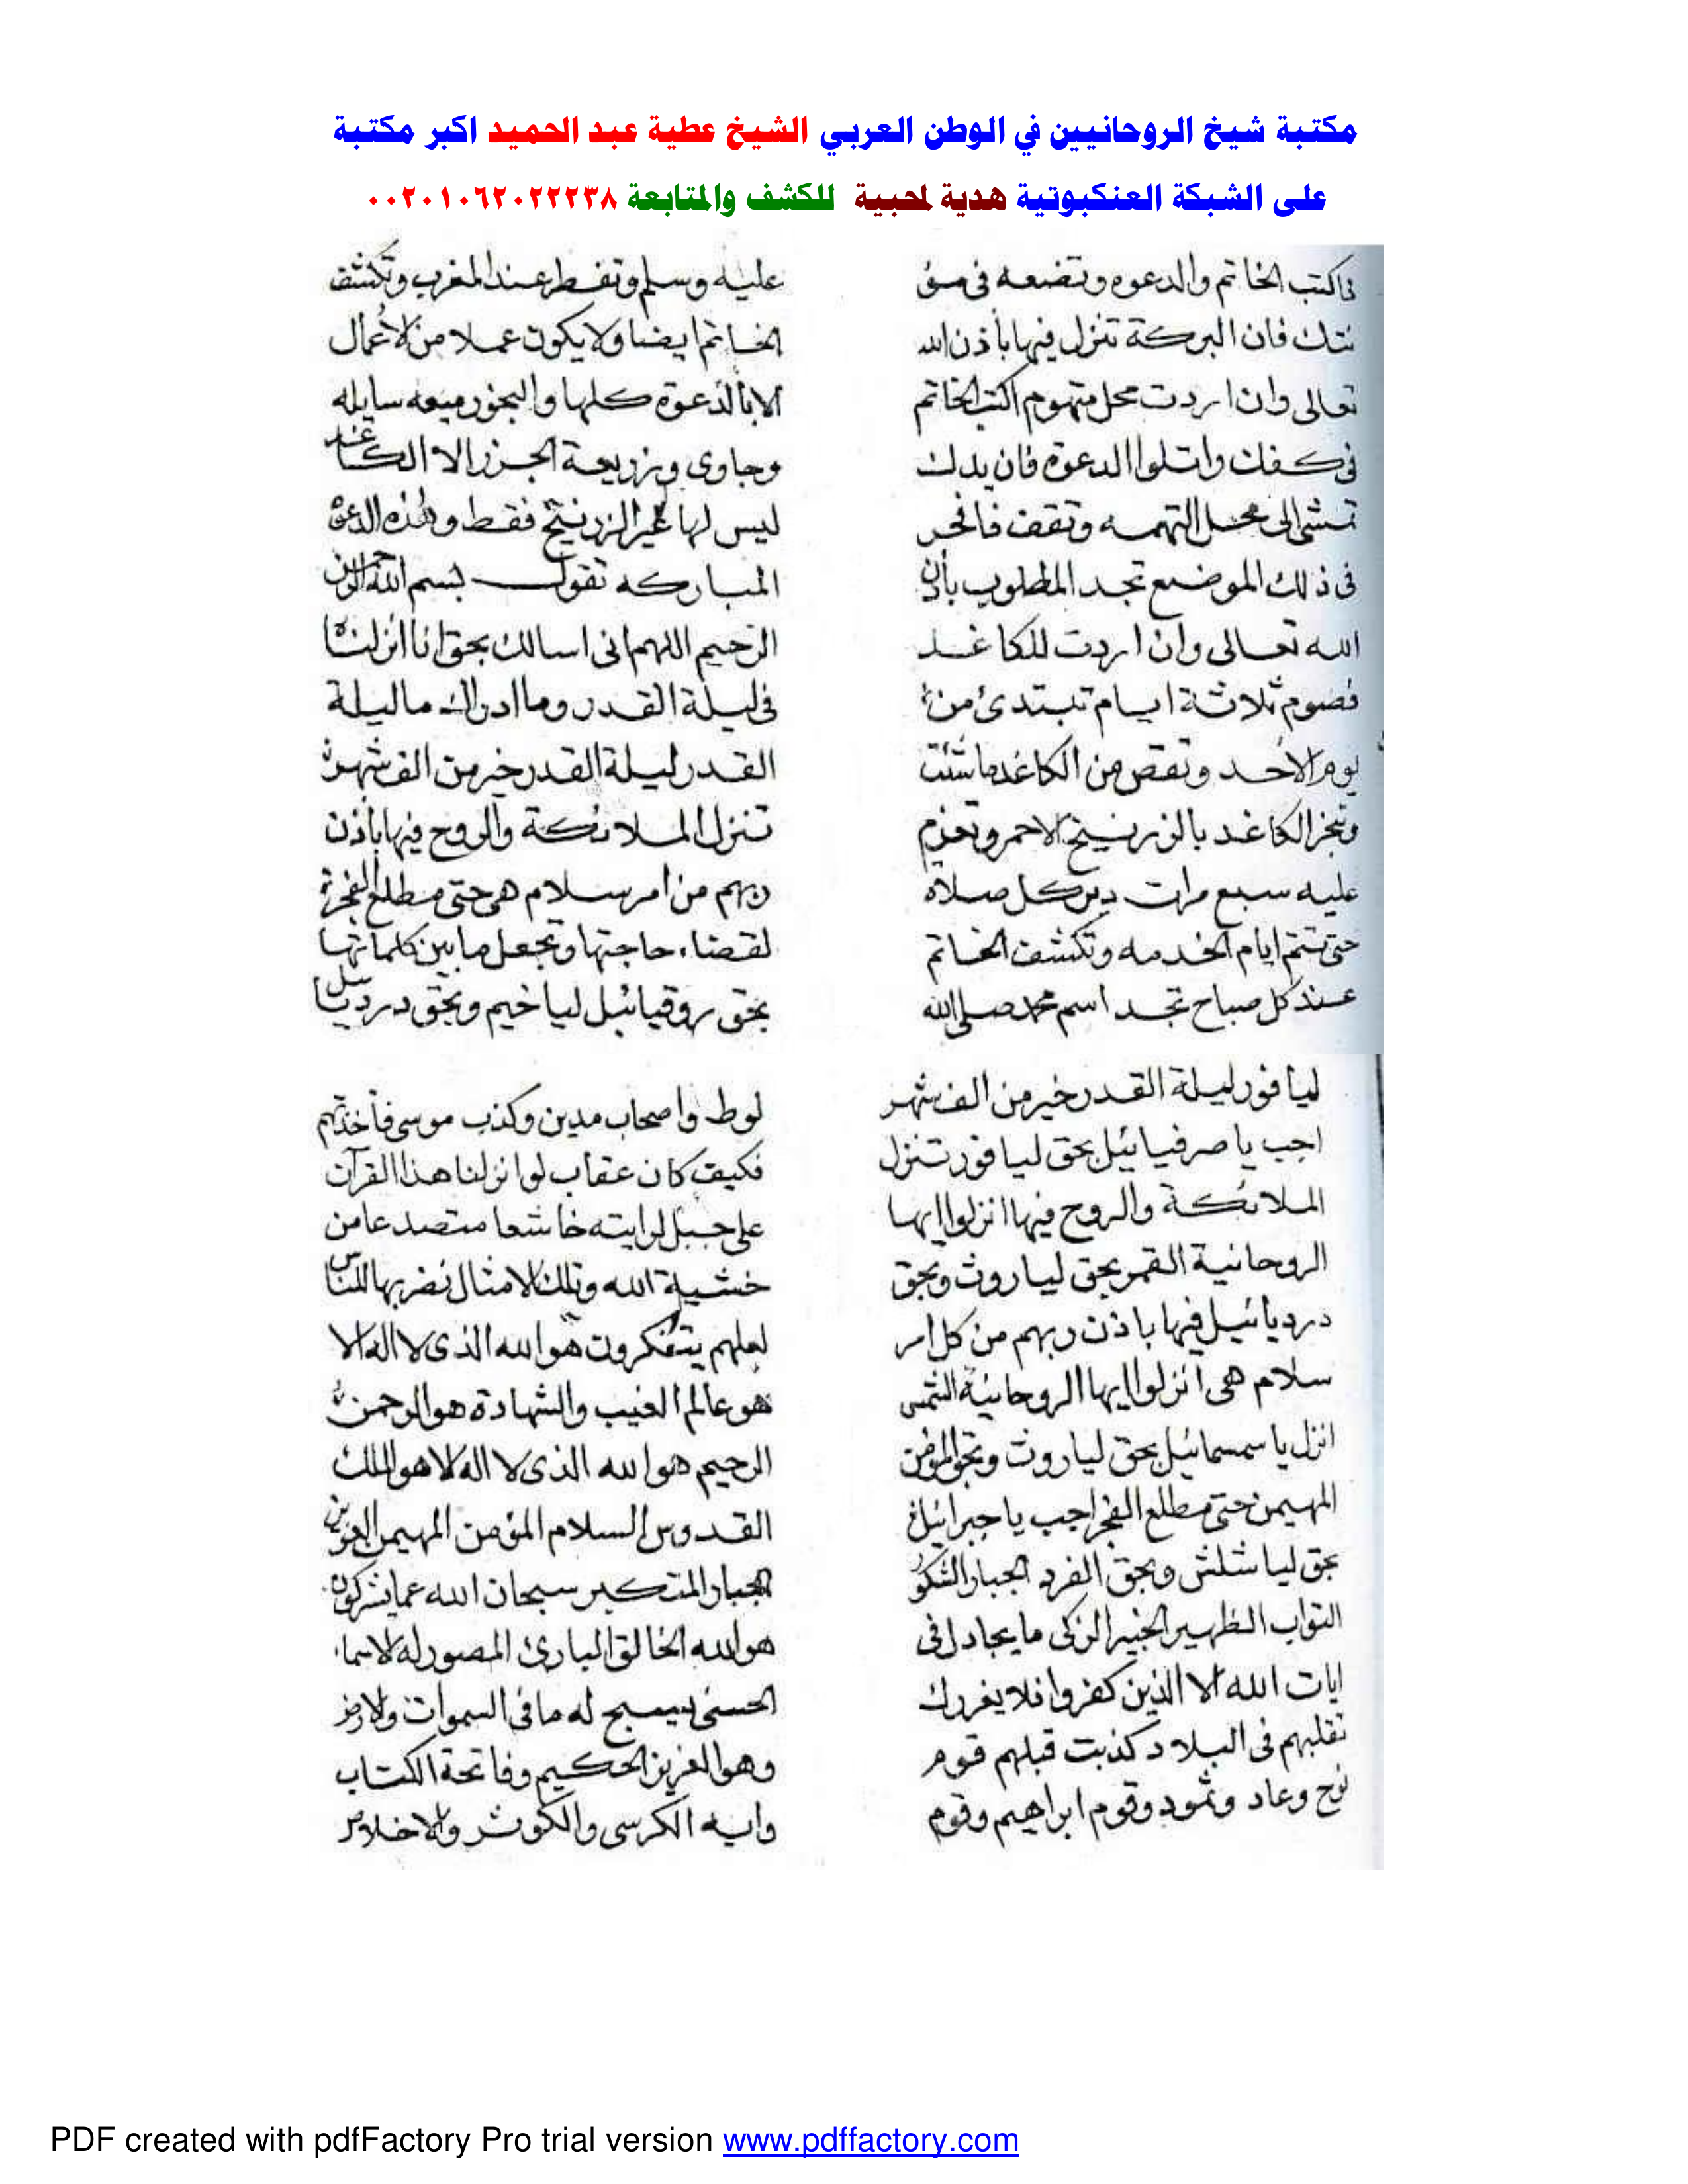 مكتبة شيخ الروحانيين في الوطن العربي الشيخ عطية عبد الحميد اكبر مكتبة
على الشبكة العنكبوتية هدية لمحبية للكشف والمتابعة ٠٠٢٠١٠٦٢٠٢٢٢٣٨
فاكتب الخاتم والدعوه وتضعه فى مؤ
نتك فان البركة تنزل فيها بأذن الله
تعالى وان اردت محل متهوم اكتب الخاتم
فى كفك واتلوا الدعوة فان يدك
تمشى الى محل التهمه وتقف فافحر
فى ذلك الموضع تجد المطلوب بأذن
الله تعالى وان اردت للكاغد
فصوم ثلاثة ايام تبتدئ من
يوم الأحد وتقص من الكاغد ما شئت
وتبخر الكاغد بالزرنيخ الاحمر وتعزم
عليه سبع مرات دبر كل صلاة
حتى تتم ايام الخدمه وتكشف الخاتم
عند كل صباح تجد اسم محمد صلى الله
عليه وسلم وتفطر عند المغرب وتكشف
الخاتم ايضا ولا يكون عملا من الأعمال
الا بالدعوة كلها والبخور ميعه سايله
وجاوى وزريعة الجزر الا الكاغد
ليس لها غير الزرنيخ فقط وهذه الدعوة
المباركه تقول بسم الله الرحمن
الرحيم اللهم انى اسالك بحق انا أنزلناه
فى ليلة القدر وما ادراك ما ليلة
القدر ليلة القدر خير من الف شهر
تنزل الملائكة والروح فيها بأذن
ربهم من امر سلام هى حتى مطلع الفجر
لقضاء حاجتها وتجعل ما بين كلماتها
بحق روقيائيل ليا خيم وبحق دردبائيل
ليا فور ليلة القدر خير من الف شهر
اجب يا صرفيائيل بحق ليا فور تنزل
الملائكة والروح فيها انزلوا ايها
الروحانية القمر بحق ليا روث وبحق
دردبائيل فيها باذن ربهم من كل امر
سلام هى انزلوا ايها الروحانية الشمس
انزل يا سمسمائيل بحق ليا روث وبحق المؤمن
المهيمن حتى مطلع الفجر اجب يا جبرائيل
بحق ليا شلش وبحق الفرد الجبار الشكور
التواب الظهير الخبير الزكى ما يجادل فى
ايات الله الا الذين كفروا فلا يغررك
تقلبهم فى البلاد كذبت قبلهم قوم
نوح وعاد وثمود وقوم ابراهيم وقوم
لوط واصحاب مدين وكذب موسى فأخذتهم
فكيف كان عقاب لو انزلنا هذا القرآن
على جبل لرايته خاشعا متصدعا من
خشية الله وتلك الامثال نضربها للناس
لعلهم يتفكرون هو الله الذى لا اله الا
هو عالم الغيب والشهادة هو الرحمن
الرحيم هو الله الذى لا اله الا هو الملك
القدوس السلام المؤمن المهيمن العزيز
الجبار المتكبر سبحان الله عما يشركون
هو الله الخالق البارئ المصور له الاسماء
الحسنى يسبح له ما فى السموات والارض
وهو العزيز الحكيم وفاتحة الكتاب
وايه الكرسى والكوثر والاخلاص
PDF created with pdfFactory Pro trial version www.pdffactory.com